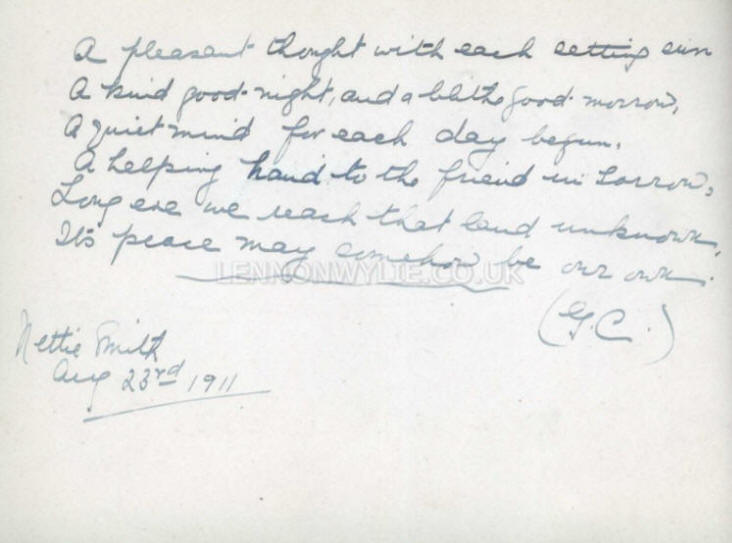 A pleasant thought with each setting sun
A kind good-night, and a blithe good-morrow,
A quiet mind for each day begun,
A helping hand to the friend in sorrow,
Long ere we reach that land unknown,
Its peace may somehow be our own.
LENNONWYLIE.CO.UK
(G.C.)
Nettie Smith
Aug 23rd 1911